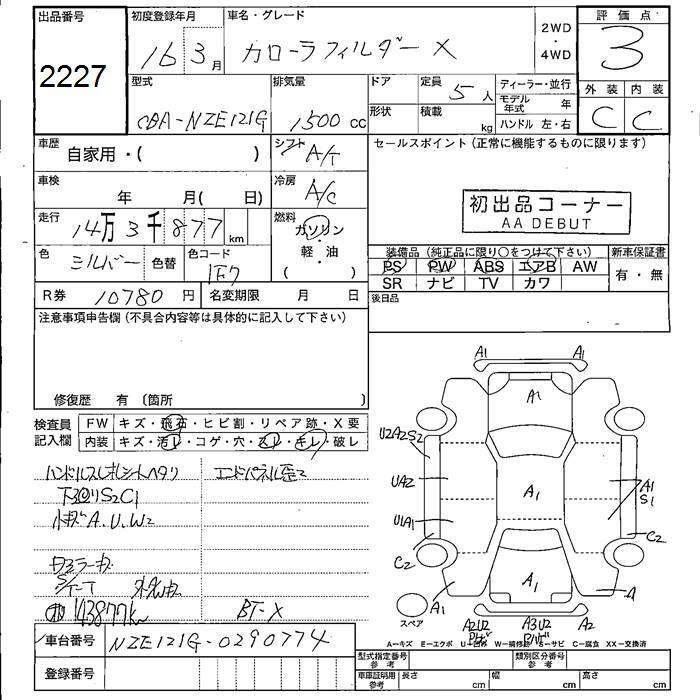 出品番号
2227
初度登録年月
16 3月
車名・グレード
カローラフィルダー X
2WD
・
4WD
評価点
3
型式
CBA-NZE121G
排気量
1500 cc
ドア
形状
定員
5人
積載
kg
ディーラー・並行
モデル年式 年
ハンドル 左・右
外装
内装
C
C
車歴
自家用・( )
シフト
A/T
セールスポイント (正常に機能するものに限ります)
車検
年 月( 日)
冷房
A/C
初出品コーナー
AA DEBUT
走行
14万3千877 km
燃料
ガソリン
・
軽・油
( )
色
シルバー
色替
色コード
1F7
装備品 (純正品に限り○をつけて下さい)
新車保証書
PS PW ABS エアB AW
SR ナビ TV カワ
有・無
R券
10780円
名変期限 月 日
後日品
注意事項申告欄 (不具合内容等は具体的に記入して下さい)
修復歴 有 〔箇所 〕
検査員
記入欄
FW キズ・飛石・ヒビ割・リペア跡・X要
内装 キズ・汚レ・コゲ・穴・スレ・キレ・破レ
ハンドルスレ シートヘタリ
エンドパネル歪2
S2C1
小キズA.U.W2
143877km
BT-X
A1
A1
A1
A1
A1
U2A2S2
UA2
U1A1
C2
A1
A1
S1
C2
A
スペア
A2U2
A3U2
A2
A-キズ E-エクボ U-凹み W-補修跡 S-サビ C-腐食 XX-交換済
車台番号
NZE121G-0290774
登録番号
型式指定番号
参考
類別区分番号
参考
車庫証明用
参考
長さ cm
幅 cm
高さ cm